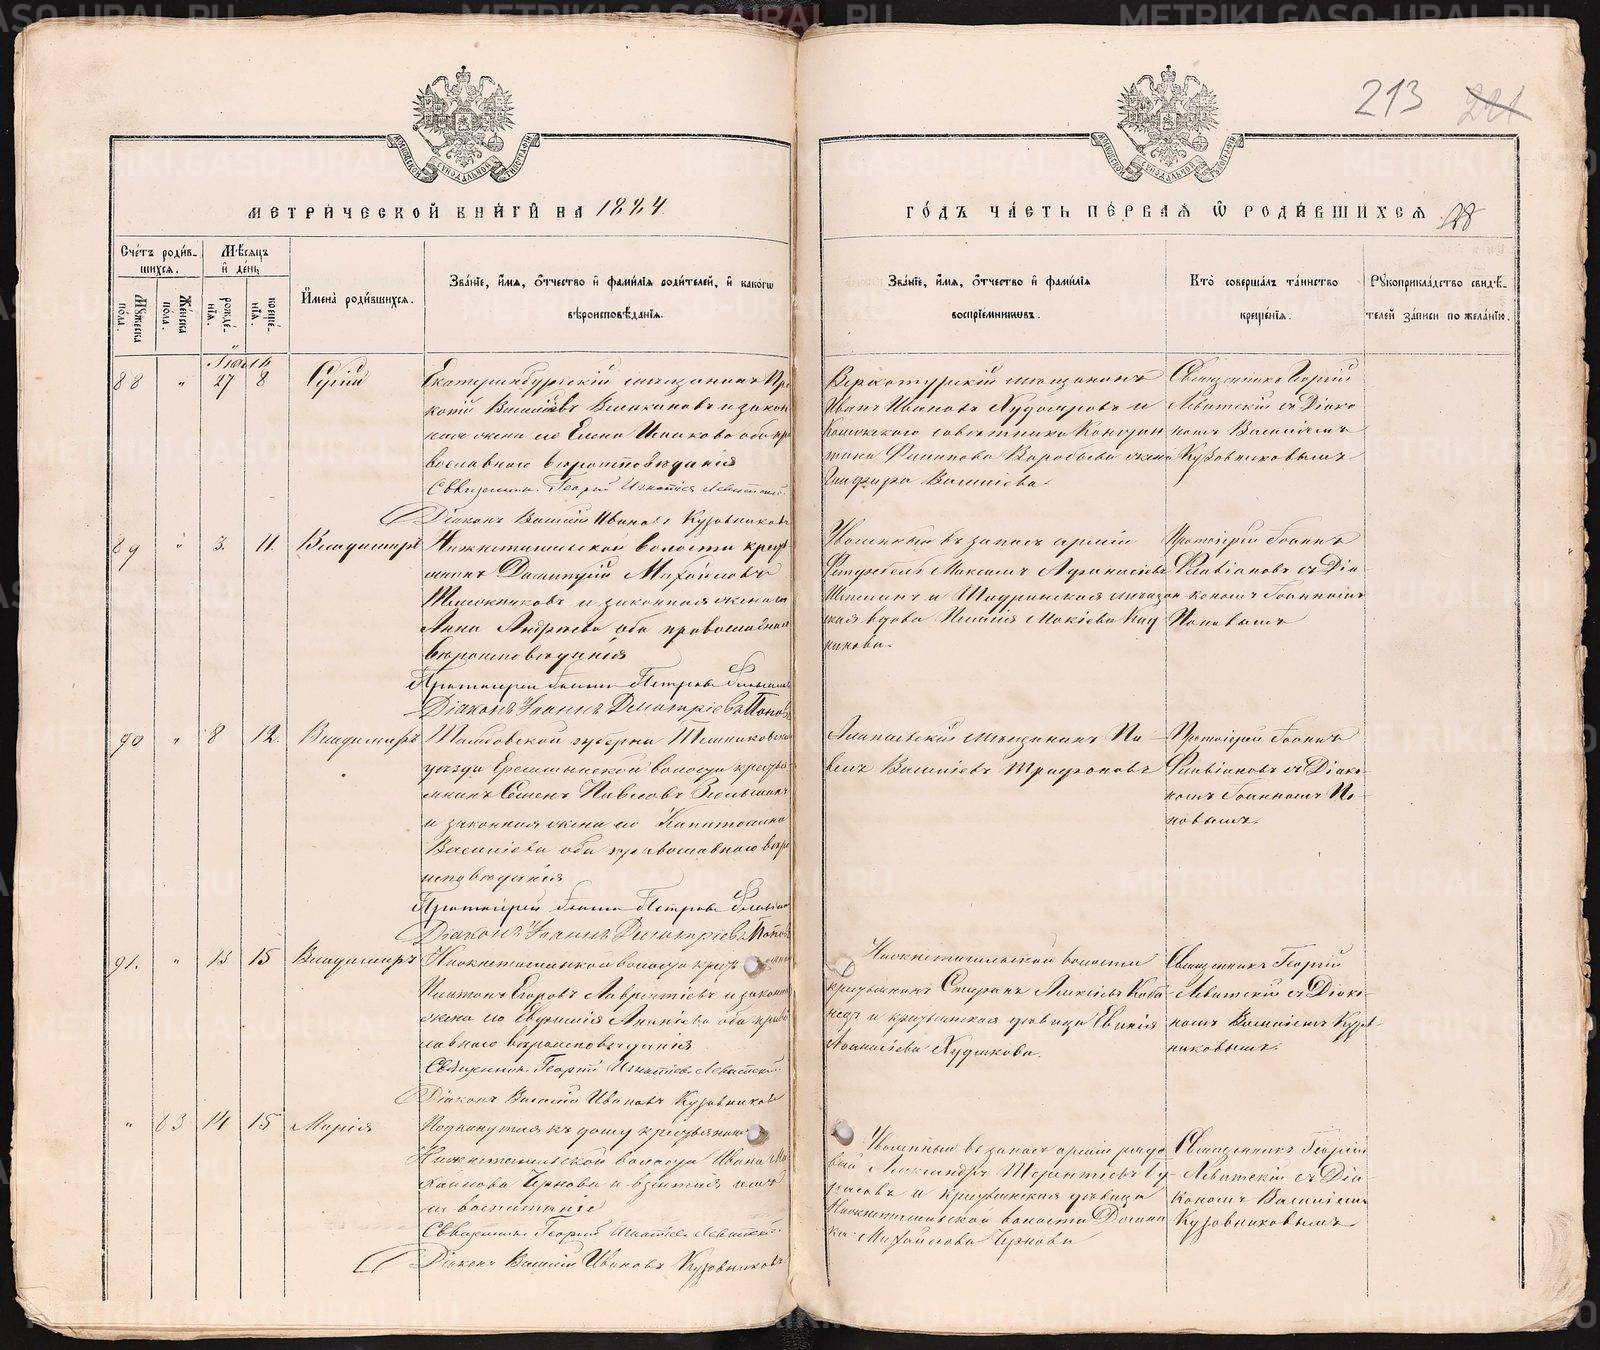 213 221
МЕТРИЧЕСКОЙ КНИГИ НА 1884
ГОДЪ ЧАСТЬ ПЕРВАЯ Ѿ РОДИВШИХСЯ 28
Счетъ родившихся.
Мужеска пола.
Женска пола.
Мѣсяцъ и день
рожденія.
крещенія.
Имена родившихся.
Званіе, имя, отчество и фамилія родителей, и какогѡ
вѣроисповѣданія.
Званіе, имя, отчество и фамилія
воспріемниковъ.
Кто совершалъ таинство
крещенія.
Рукоприкладство свидѣ-
телей записи по желанію.
88 " 27 8 Сергій
Екатеринбургскій мѣщанинъ
Василіевъ и закон
ная жена его Елена оба пра
вославного вѣроисповѣданія
Священникъ Георгій Игнатіевъ Левитскій
Діаконъ Василій Ивановъ Кузовниковъ
Верхотурскій мѣщанинъ
Иванъ Ивановъ Худояровъ и
совѣтника Констан
тина Воробьева жена
Глафира Василіева.
Священникъ Георгій
Левитскій съ Діако
номъ Василіемъ
Кузовниковымъ
89 " 3. 11. Владимиръ
Нижнетагильской волости кресть
янинъ Димитрій Михайловъ
и законная жена его
Анна Андреева оба православнаго
вѣроисповѣданія
Протоіерей Іоаннъ Петровъ Флавіановъ
Діаконъ Іоаннъ Дмитріевъ Поповъ
Уволенный въ запасъ арміи
Максимъ Афанасіевъ
и Шадринская мѣщан
ская вдова Мокіева
Протоіерей Іоаннъ
Флавіановъ съ Діа-
кономъ Іоанномъ
Поповымъ
90 " 8 12. Владимиръ
Тамбовской губерніи Темниковскаго
уѣзда волости кресть
янинъ Семенъ Павловъ
и законная жена его Капитолина
Василіева оба православнаго вѣро
исповѣданія
Протоіерей Іоаннъ Петровъ Флавіановъ
Діаконъ Іоаннъ Дмитріевъ Поповъ
Алапаевскій мѣщанинъ Па-
велъ Василіевъ Трифоновъ
Протоіерей Іоаннъ
Флавіановъ съ Діако-
номъ Іоанномъ По-
повымъ.
91. " 13 15 Владимиръ
Нижнетагильской волости кресть
Платонъ Егоровъ Лаврентіевъ и законная
жена его Евфимія Ананіева оба право
славного вѣроисповѣданія
Священникъ Георгій Игнатіевъ Левитскій
Діаконъ Василій Ивановъ Кузовниковъ
Нижнетагильской волости
крестьянинъ Стефанъ Алексіевъ
и крестьянская дѣвица
Афанасіева Худякова.
Священникъ Георгій
Левитскій съ Діако-
номъ Василіемъ Кузов-
никовымъ.
" 83 14 15 Марія
Подкинутая къ дому крестьянина
Нижнетагильской волости Ивана Ми
хаилова Чернова и взятая имъ
на воспитаніе
Священникъ Георгій Игнатіевъ Левитскій
Діаконъ Василій Ивановъ Кузовниковъ
Уволенный въ запасъ арміи рядо
вый Александръ Терентіевъ
и крестьянская дѣвица
Нижнетагильской волости
Михайлова Чернова
Священникъ Георгій
Левитскій съ Діа-
кономъ Василіемъ
Кузовниковымъ